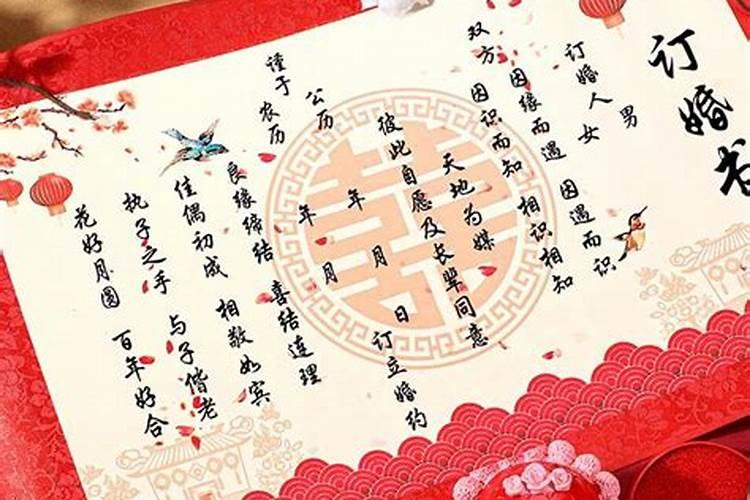 订婚书
男
订婚人 女
双方
因缘而遇 因遇而识
因识而知 相识相知
天地为媒
彼此自愿及长辈同意
谨于
公历 年 月 日 订立婚约
农历 年 月
良缘缔结 喜结连理
佳偶初成 相敬如宾
执子之手 与子偕老
花好月圆 百年好合